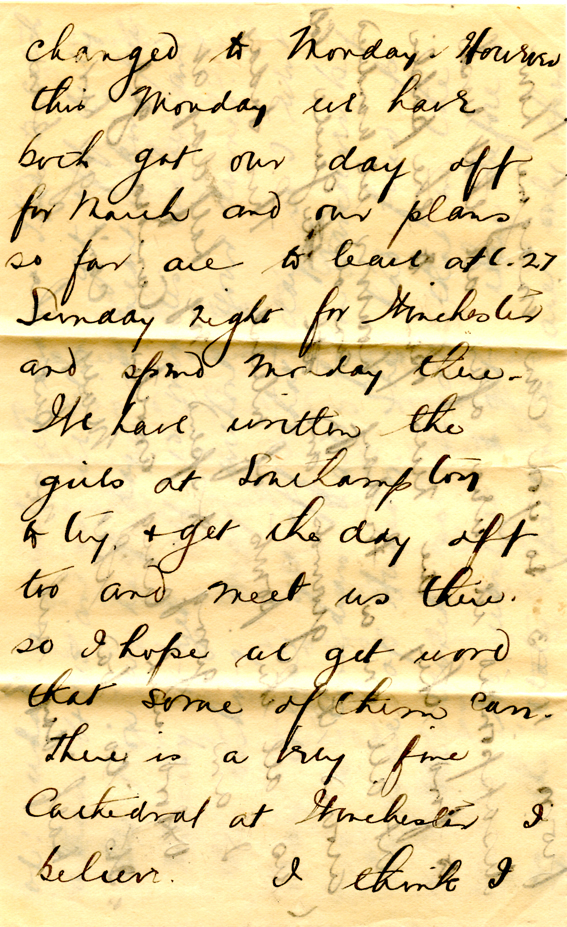 changed to Monday. However
this Monday we have
both got our day off
for March and our plans
so far are to leave at 6.27
Sunday night for Winchester
and spend Monday there.
We have written the
girls at Southampton
to try & get the day off
too and meet us there.
so I hope we get word
that some of them can.
There is a very fine
Cathedral at Winchester I
believe. I think I